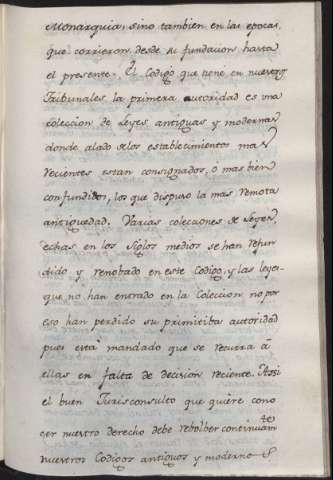 Monarquia, sino tambien en las epocas,
que corrieron desde su fundacion hasta
el presente. El Codigo que tiene en nuestros
Tribunales la primera autoridad es una
coleccion de Leyes antiguas y modernas
donde alado delos establecimientos mas
recientes estan consignados, ó mas bien
confundidos, los que dispuso la mas remota
antiguedad. Varias colecciones de Leyes
echas en los Siglos medios se han refun
dido y renobado en este Codigo, y las leyes
que no han entrado en la Coleccion no por
eso han perdido su primitiba autoridad
pues está mandado que se recurra á
ellas en falta de decision reciente. Assi
el buen Jurisconsulto que quiere cono
cer nuestro derecho debe rebolber continuam.te
nuestros Codigos antiguos y modernos